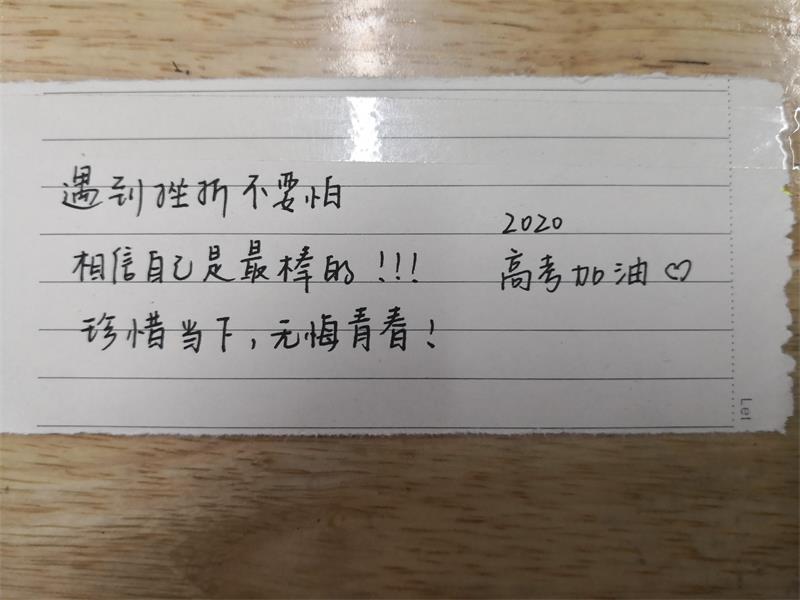 遇到挫折不要怕
相信自己是最棒的!!!
珍惜当下,无悔青春!
2020
高考加油♡
Let